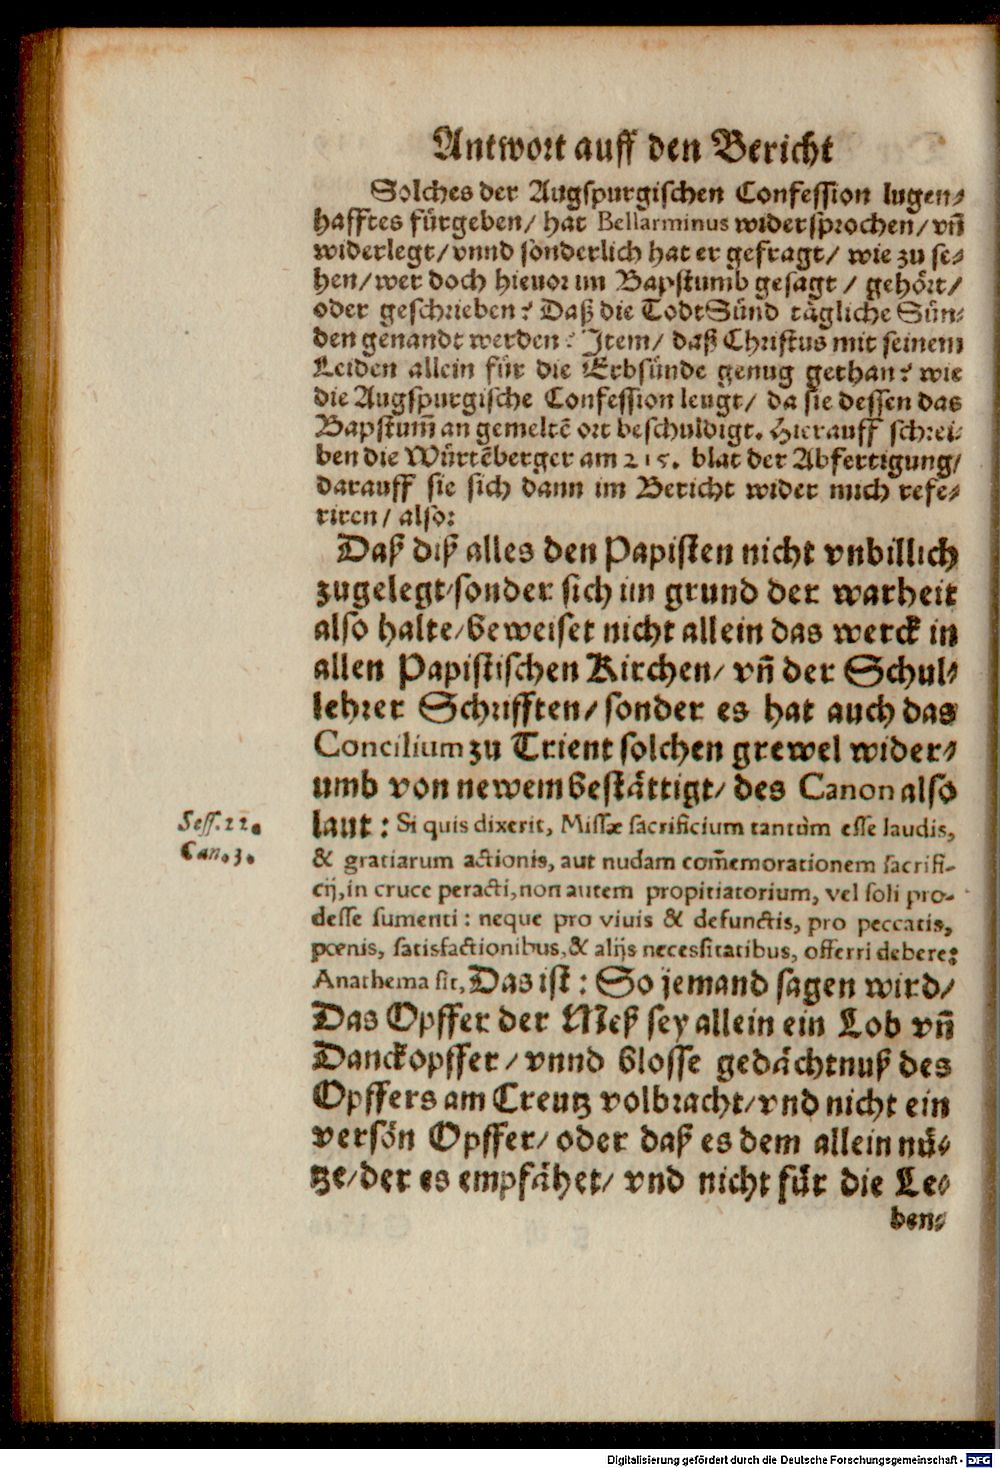 Antwort auff den Bericht
Solches der Augspurgischen Confession lugen⸗
hafftes fürgeben/ hat Bellarminus widersprochen/ vñ
widerlegt/ vnnd sonderlich hat er gefragt/ wie zu se⸗
hen/ wer doch hieuor im Bapstumb gesagt / gehört/
oder geschrieben? Daß die TodtSünd tägliche Sün⸗
den genandt werden? Item/ daß Christus mit seinem
Leiden allein für die Erbsünde genug gethan? wie
die Augspurgische Confession leugt/ da sie dessen das
Bapstum̃ an gemeltẽ ort beschuldigt. Hierauff schrei⸗
ben die Würtẽberger am 215. blat der Abfertigung/
darauff sie sich dann im Bericht wider mich refe⸗
riren/ also:
Daß diß alles den Papisten nicht vnbillich
zugelegt/ sonder sich im grund der warheit
also halte/ beweiset nicht allein das werck in
allen Papistischen Kirchen/ vñ der Schul⸗
lehrer Schrifften/ sonder es hat auch das
Concilium zu Trient solchen grewel wider⸗
umb von newem bestättigt/ des Canon also
Sess. 22.
Can. 3.
laut: Si quis dixerit, Missæ sacrificium tantùm esse laudis,
& gratiarum actionis, aut nudam com̃emorationem sacrifi-
cij, in cruce peracti, non autem propitiatorium, vel soli pro-
desse sumenti: neque pro viuis & defunctis, pro peccatis,
pœnis, satisfactionibus, & alijs necessitatibus, offerri debere;
Anathema sit, Das ist: So jemand sagen wird/
Das Opffer der Meß sey allein ein Lob vñ
Danckopffer/ vnnd blosse gedächtnuß des
Opffers am Creutz volbracht/ vnd nicht ein
versön Opffer/ oder daß es dem allein nü⸗
tze/ der es empfähet/ vnd nicht für die Le⸗
ben⸗
Digitalisierung gefördert durch die Deutsche Forschungsgemeinschaft - DFG